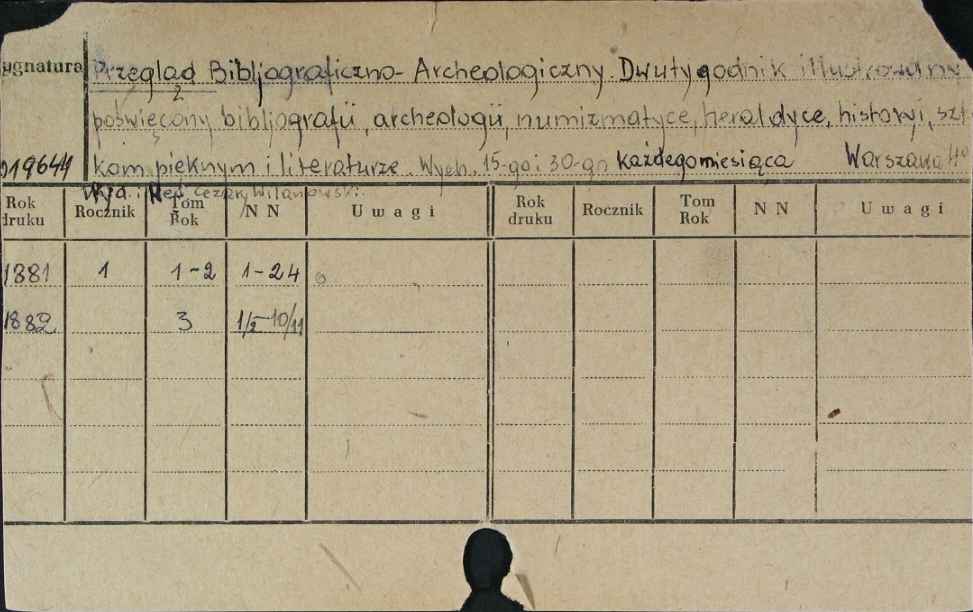 ygnatura Przegląd Bibljograficzno-Archeologiczny. Dwutygodnik illustrowany
poświęcony bibljografii, archeologii, numizmatyce, heraldyce, historyi, szt
019644 kom pięknym i literaturze. Wych. 15-go i 30-go każdego miesiąca Warszawa
Wyd. i Red. Cezary Wilanowski.
Rok druku Rocznik Tom Rok N N Uwagi Rok druku Rocznik Tom Rok N N Uwagi
1881 1 1-2 1-24
1882 3 1/2-10/11